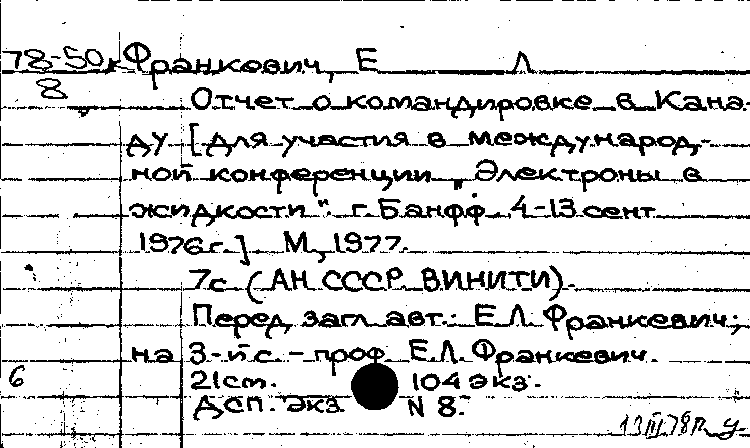 78-50к Франкевич, Е Л
8
Отчет о командировке в Кана-
ду [для участия в международ-
ной конференции „Электроны в
жидкости". г. Банфф. 4-13 сент
1976г.]. М., 1977.
7с. (АН СССР. ВИНИТИ).
Перед загл. авт.: Е.Л. Франкевич;
на 3-й с. - проф. Е.Л. Франкевич.
6 21 см. 104 экз.
ДСП. экз. N 8.
13 III 78г.